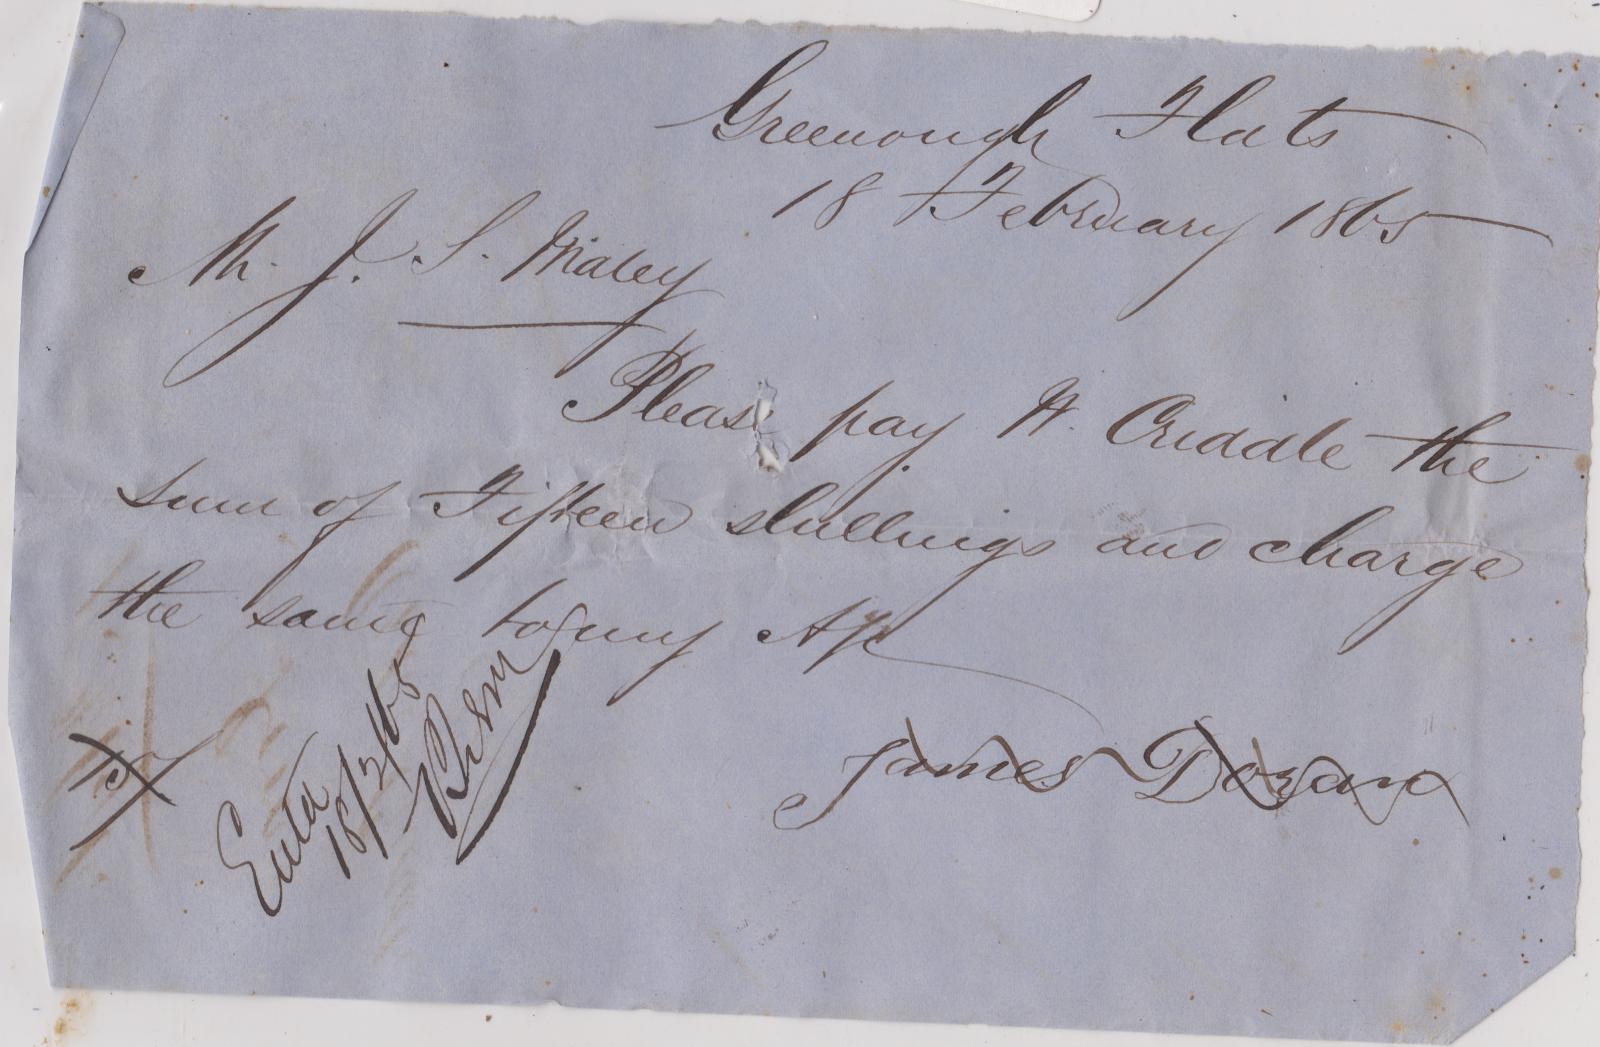 Greenough Flats
18 February 1865
Mr. J. S. Maley
Please pay W. Criddle the
sum of Fifteen shillings and charge
the same to my A/c
James Doran
15/
Entd
18/2/65